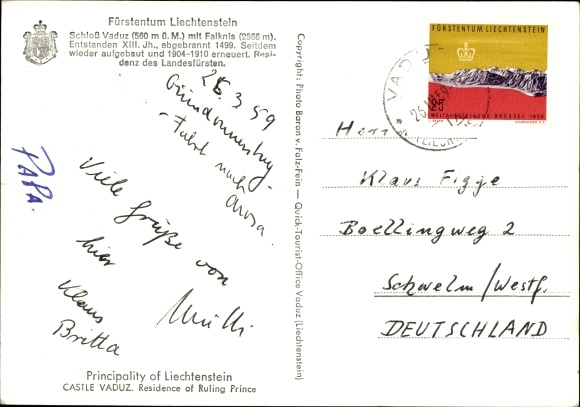 Fürstentum Liechtenstein
Schloß Vaduz (560 m ü. M.) mit Falknis (2566 m).
Entstanden XIII. Jh., abgebrannt 1499. Seitdem
wieder aufgebaut und 1904-1910 erneuert. Resi-
denz des Landesfürsten.
26.3.59
Gründonnerstag -
- Fahrt nach
Arosa.
PAPA.
Viele Grüße von
hier
Klaus
Britta
Mutti
Principality of Liechtenstein
CASTLE VADUZ. Residence of Ruling Prince
Copyright: Photo Baron v. Falz-Fein — Quick-Tourist-Office Vaduz (Liechtenstein)
FÜRSTENTUM LIECHTENSTEIN
25
WELTAUSSTELLUNG BRÜSSEL 1958
VADUZ
Herrn
Klaus Figge
Boellingweg 2
Schwelm/Westf.
DEUTSCHLAND